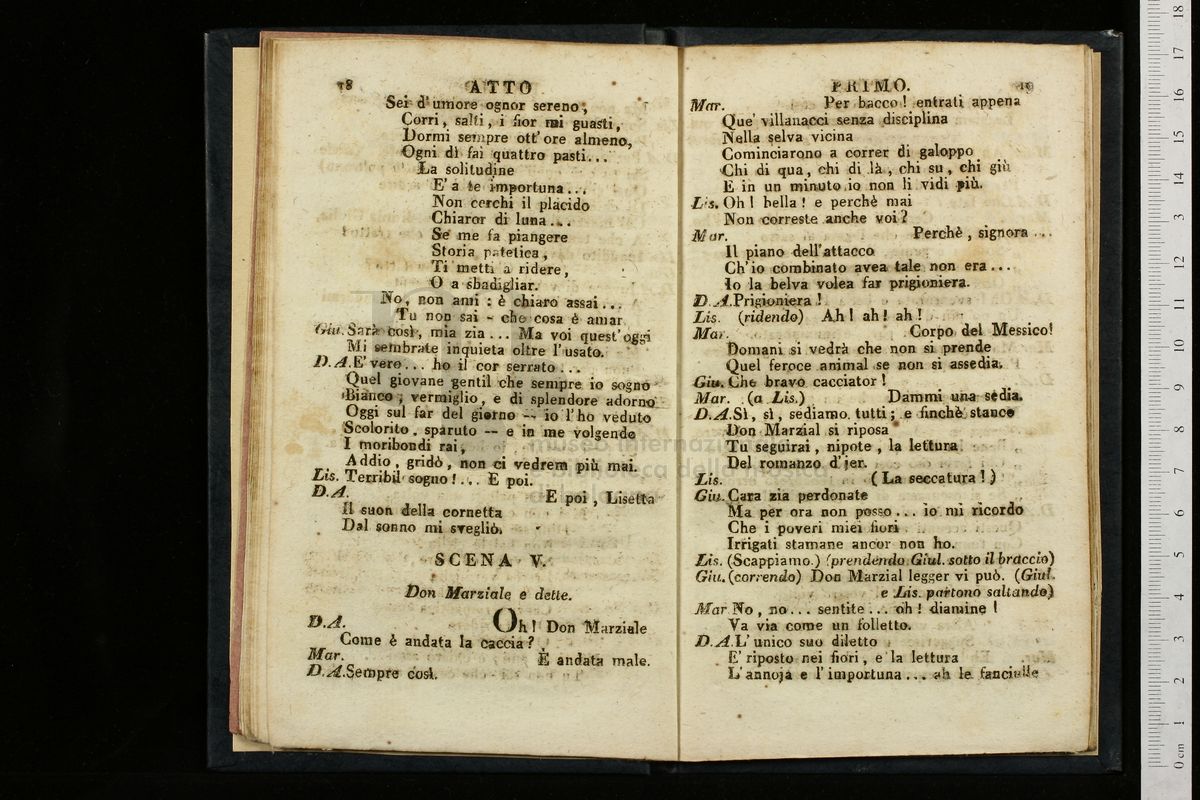 18 ATTO
Sei d'umore ognor sereno,
Corri, salti, i fior mi guasti,
Dormi sempre ott'ore almeno,
Ogni dì fai quattro pasti...
La solitudine
E' a te importuna...
Non cerchi il placido
Chiaror di luna...
Se me fa piangere
Storia patetica,
Ti metti a ridere,
O a sbadigliar.
No, non ami : è chiaro assai...
Tu non sai - che cosa è amar
Giu. Sarà così, mia zia... Ma voi quest'oggi
Mi sembrate inquieta oltre l'usato.
D.A. E' vero... ho il cor serrato...
Quel giovane gentil che sempre io sogno
Bianco, vermiglio, e di splendore adorno
Oggi sul far del giorno -- io l'ho veduto
Scolorito, sparuto -- e in me volgendo
I moribondi rai,
Addio, gridò, non ci vedrem più mai.
Lis. Terribil sogno!... E poi.
D.A. E poi, Lisetta
Il suon della cornetta
Dal sonno mi svegliò.
SCENA V.
Don Marziale e dette.
D.A. Oh! Don Marziale
Come è andata la caccia?
Mar. E andata male.
D.A. Sempre così.
PRIMO. 19
Mar. Per bacco! entrati appena
Que' villanacci senza disciplina
Nella selva vicina
Cominciarono a correr di galoppo
Chi di qua, chi di là, chi su, chi giù
E in un minuto io non li vidi più.
Lis. Oh! bella! e perchè mai
Non correste anche voi?
Mar. Perchè, signora...
Il piano dell'attacco
Ch'io combinato avea tale non era...
Io la belva volea far prigioniera.
D.A. Prigioniera!
Lis. (ridendo) Ah! ah! ah!
Mar. Corpo del Messico!
Domani si vedrà che non si prende
Quel feroce animal se non si assedia.
Giu. Che bravo cacciator!
Mar. (a Lis.) Dammi una sedia.
D.A. Sì, sì, sediamo tutti; e finchè stanco
Don Marzial si riposa
Tu seguirai, nipote, la lettura
Del romanzo d'jer.
Lis. (La seccatura!)
Giu. Cara zia perdonate
Ma per ora non posso... io mi ricordo
Che i poveri miei fiori
Irrigati stamane ancor non ho.
Lis. (Scappiamo.) (prendendo Giul. sotto il braccio)
Giu. (correndo) Don Marzial legger vi può. (Giul.
e Lis. partono saltando)
Mar No, no... sentite... oh! diamine!
Va via come un folletto.
D.A. L'unico suo diletto
E' riposto nei fiori, e la lettura
L'annoja e l'importuna... ah le fanciulle
museo internazionale
della musica
0 cm 1 2 3 4 5 6 7 8 9 10 11 12 13 14 15 16 17 18